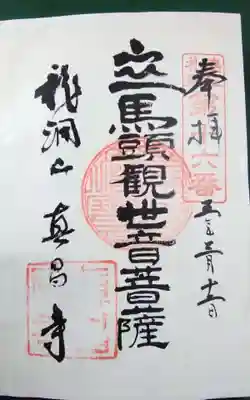 奉拝
六番
五年三月十一日
立馬頭観世音菩薩
龍洞山 真昌寺